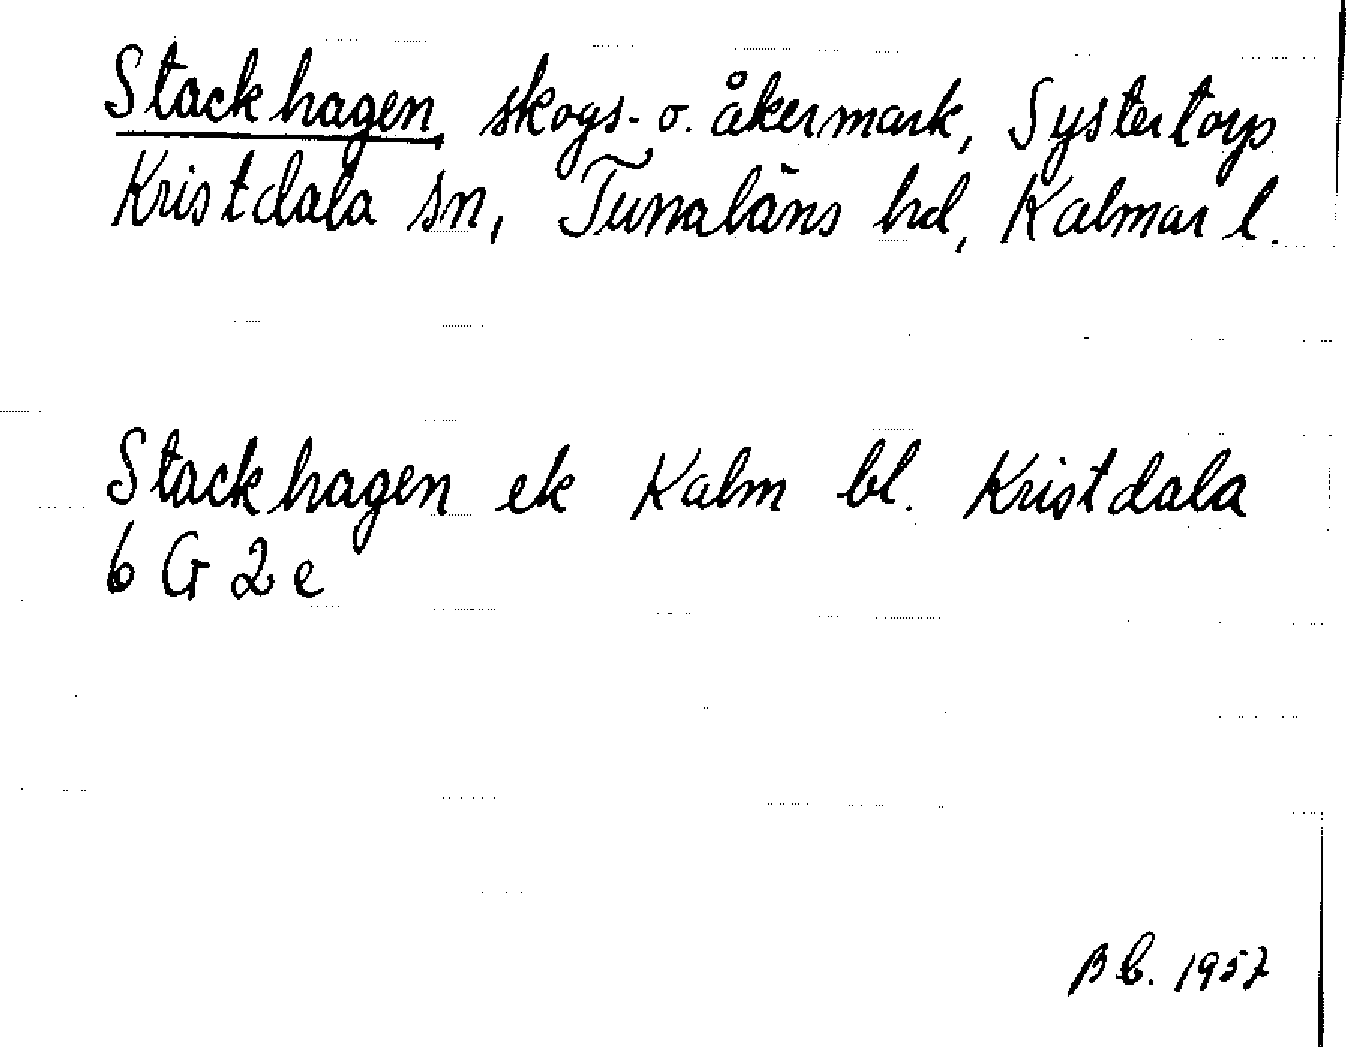 Stackhagen, skogs- o. åkermark, Systertorp
Kristdala sn, Tunaläns hd, Kalmar l.
Stackhagen ek Kalm bl. Kristdala
6 G 2 e
1957